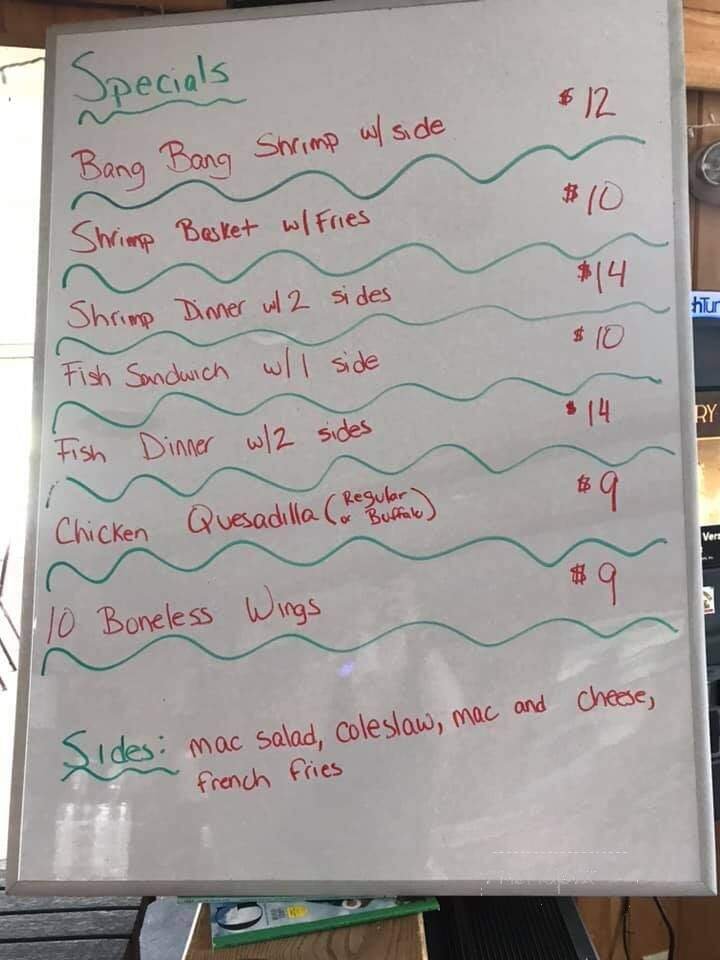 Specials
Bang Bang Shrimp w/ side $12
Shrimp Basket w/ Fries $10
Shrimp Dinner w/ 2 sides $14
Fish Sandwich w/ 1 side $10
Fish Dinner w/2 sides $14
Chicken Quesadilla (Regular or Buffalo) $9
10 Boneless Wings $9
Sides: mac salad, coleslaw, mac and cheese,
french fries